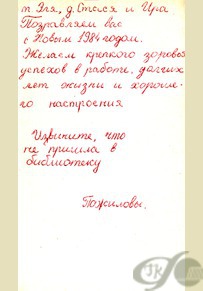 т. Эля, д. Стася и Ира
Поздравляем Вас
с Новым 1984 годом.
Желаем крепкого здоровья
успехов в работе, долгих
лет жизни и хороше-
го настроения
Извините, что
не пришла в
библиотеку
Пожиловы.